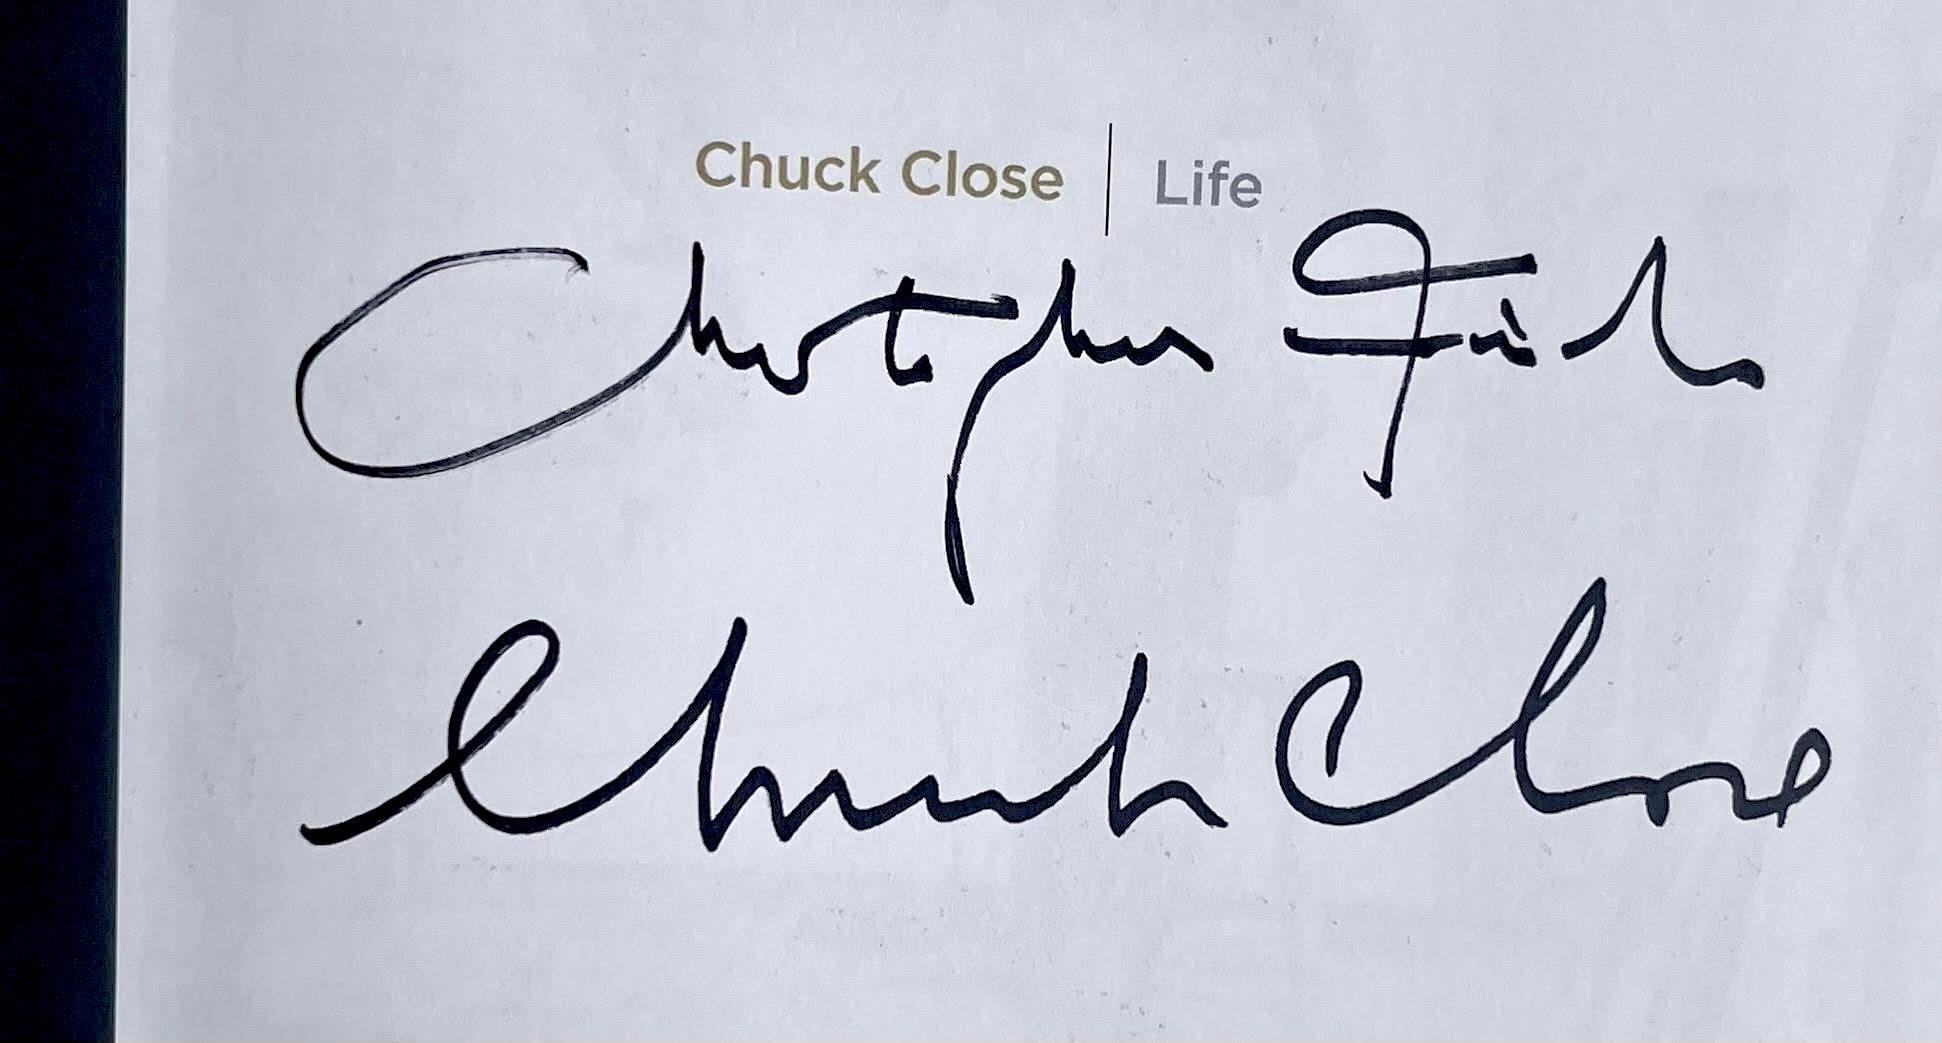 Chuck Close | Life
Christopher Finch
Chuck Close